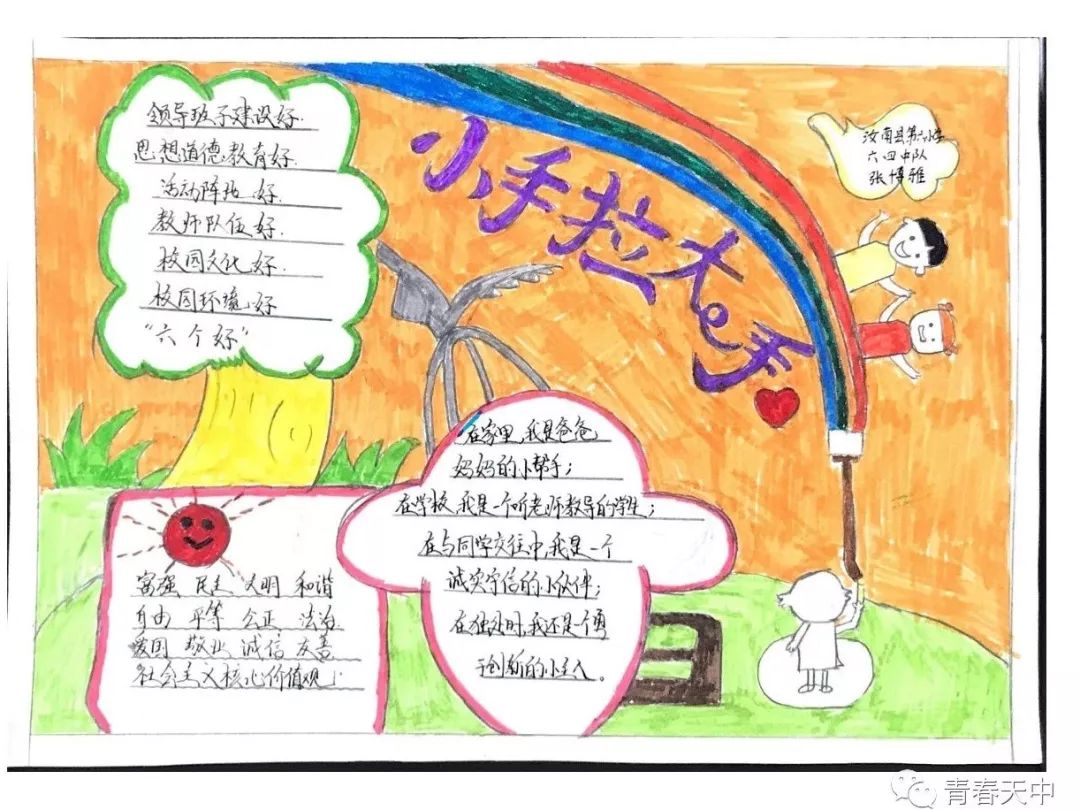 领导班子建设好.
思想道德教育好.
活动阵地 好.
教师队伍好.
校园文化 好.
校园环境 好
“六个好”
小手拉大手
汝南县第六小学
六四中队
张博雅
在家里,我是爸爸
妈妈的小帮手;
在学校,我是一个听老师教导的学生;
在与同学交往中,我是一个
诚实守信的小伙伴;
在独处时,我还是个勇
于创新的小主人。
富强 民主 文明 和谐
自由 平等 公正 法治
爱国 敬业 诚信 友善
社会主义核心价值观!
青春天中